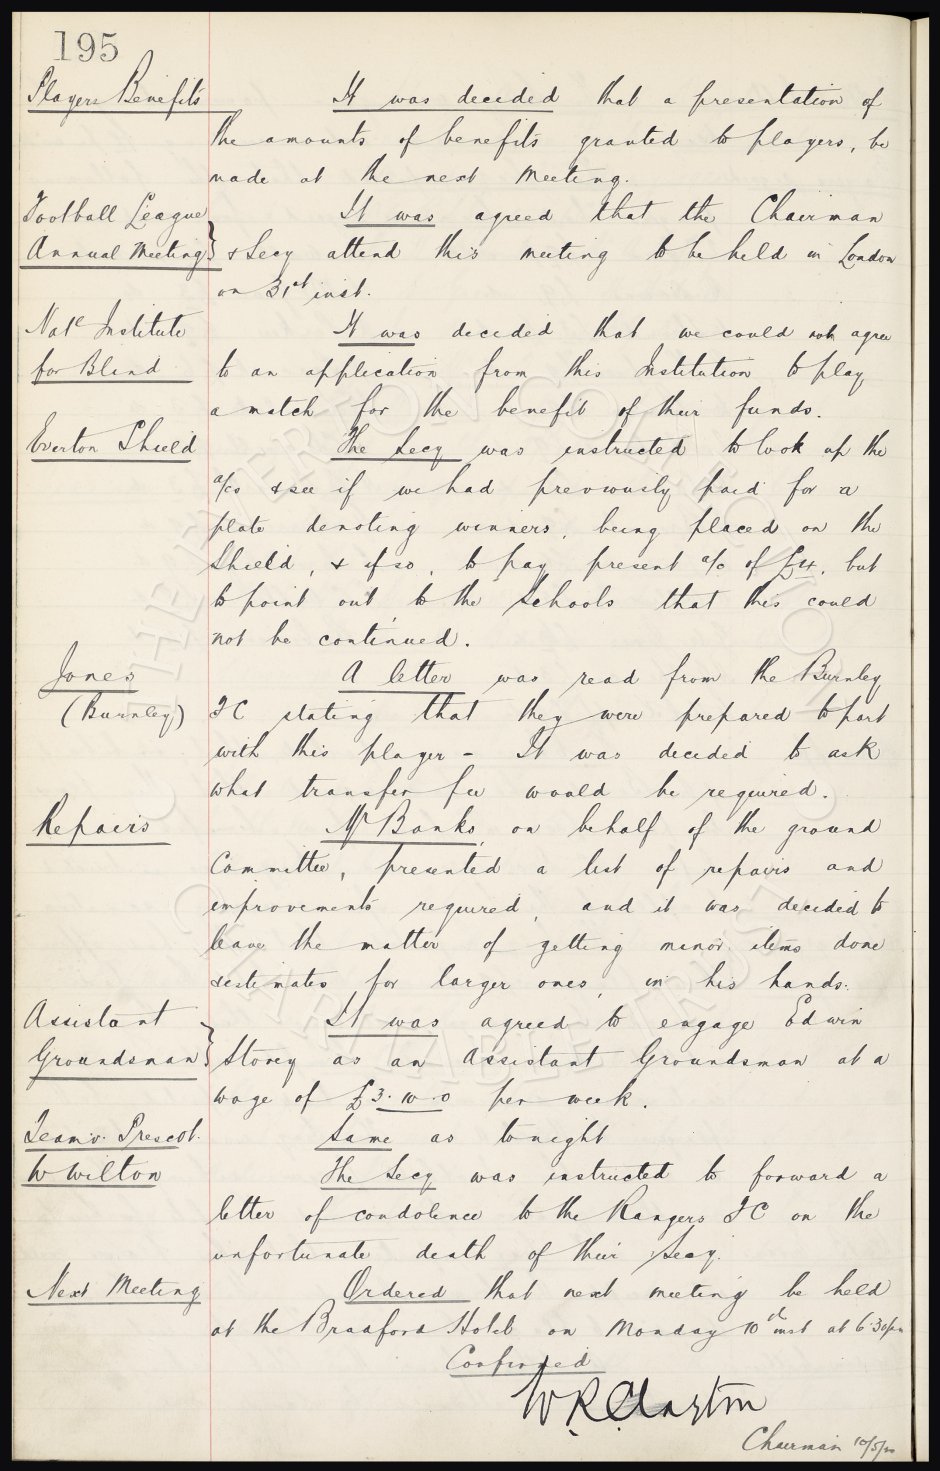 195
Players Benefits It was decided that a presentation of
the amounts of benefits granted to players, be
made at the next meeting.
Football League It was agreed that the Chairman
Annual Meeting } & Secy attend this meeting to be held in London
on 31st inst.
Natl Institute It was decided that we could not agree
for Blind to an application from this Institution to play
a match for the benefit of their funds.
Everton Shield The Secy was instructed to look up the
a/cs & see if we had previously paid for a
plate denoting winners, being placed on the
Shield, & if so, to pay present a/c of £4, but
to point out, to the Schools that this could
not be continued.
Jones A letter was read from the Burnley
(Burnley) FC stating that they were prepared to part
with this player - It was decided to ask
what transfer fee would be required.
Repairs Mr Banks, on behalf of the ground
Committee, presented a list of repairs and
improvements required, and it was decided to
leave the matter of getting minor items done
& estimates for larger ones, in his hands.
Assistant It was agreed to engage Edwin
Groundsman } Storey as an Assistant Groundsman at a
wage of £3.10.0 per week.
Team v. Prescot. Same as tonight
W Wilton The Secy was instructed to forward a
letter of condolence to the Rangers FC on the
unfortunate death of their Secy.
Next Meeting Ordered that next meeting be held
at the Bradford Hotel on Monday 10th inst at 6.30pm
Confirmed
W. R. Clayton
Chairman 10/5/20
THE EVERTON COLLECTION
CHARITABLE TRUST